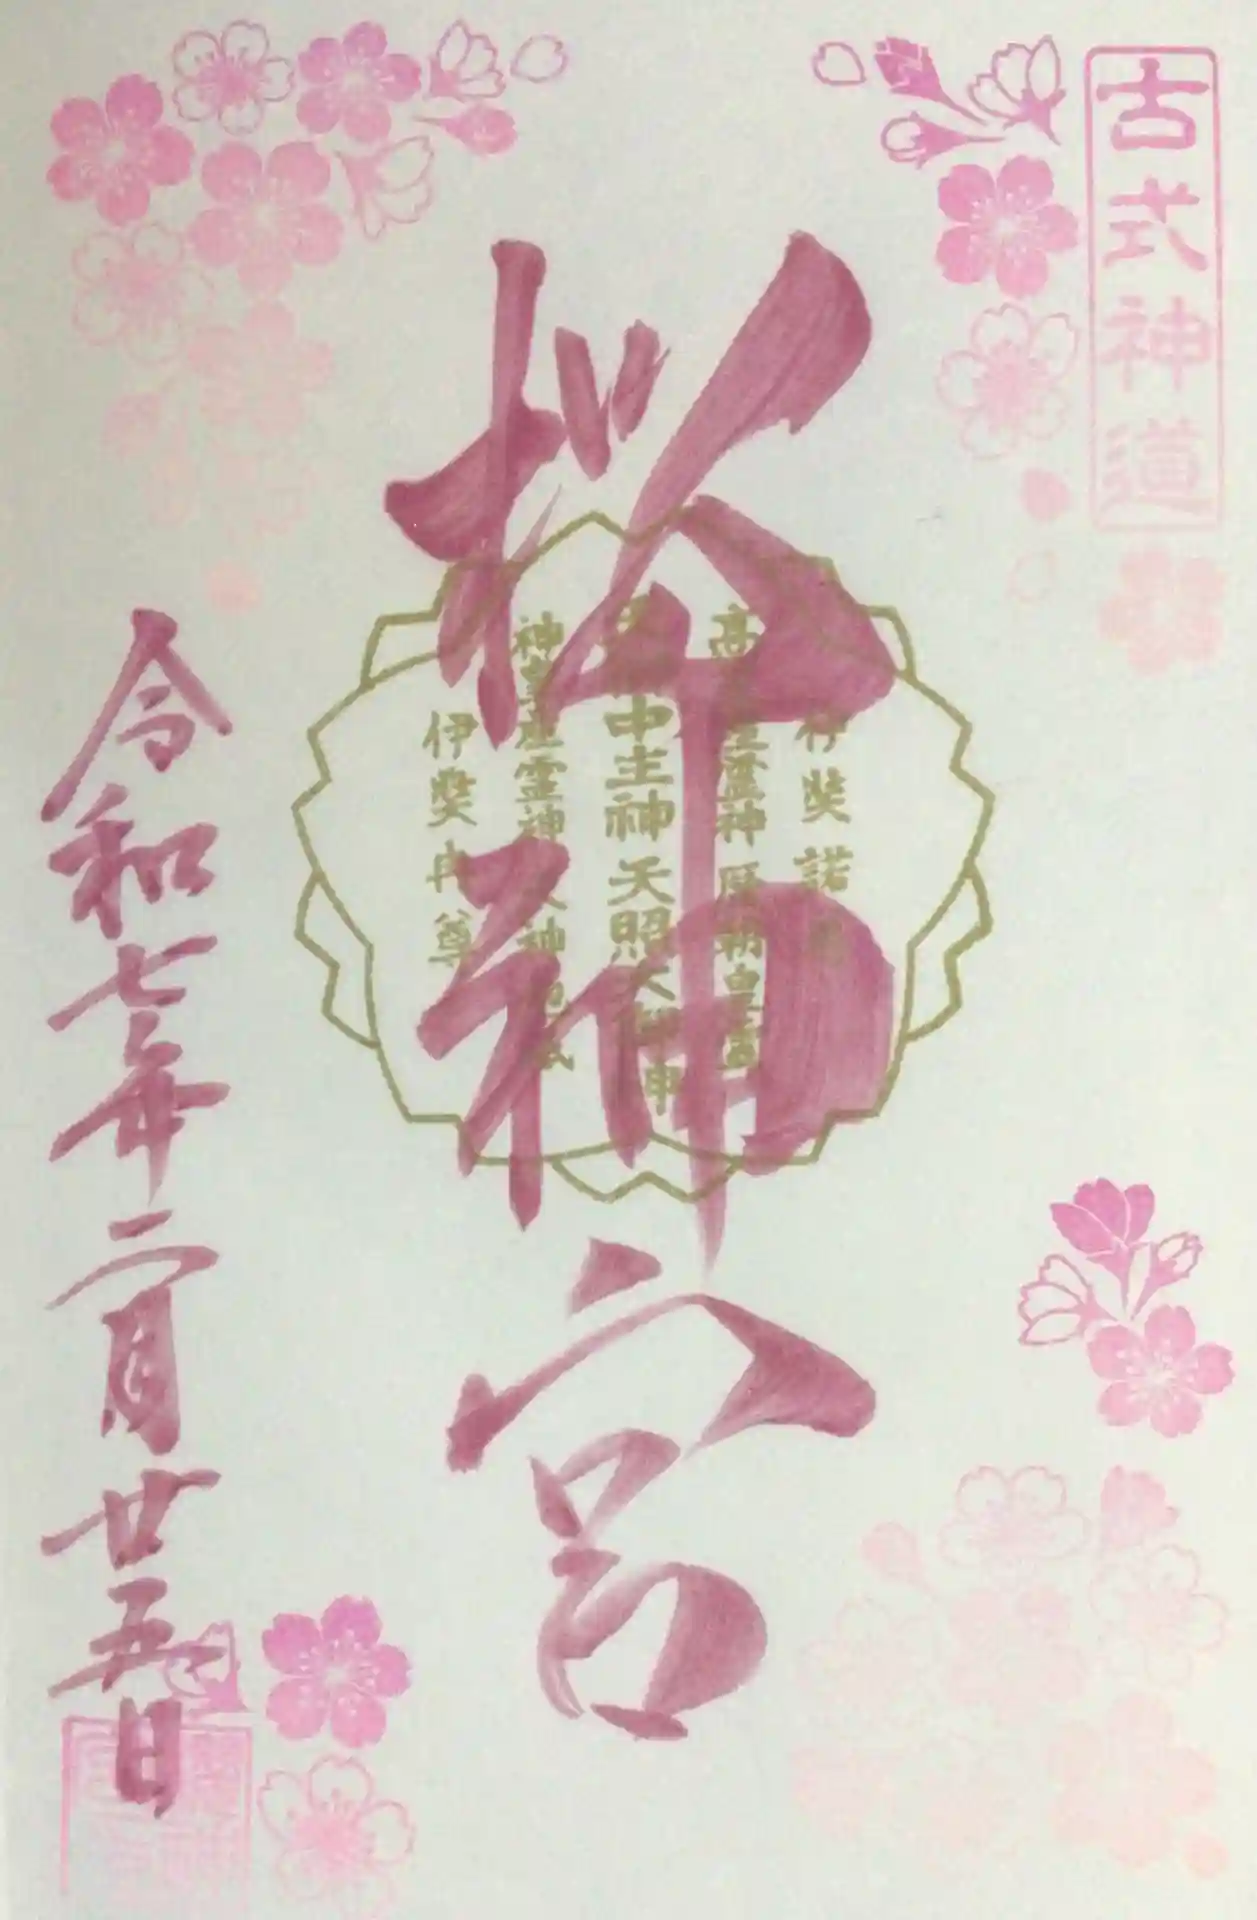 古式神道
桜神宮
伊奘諾
産霊神 歴朝皇霊
中主神 天照大御神
神皇産霊神 天神地祇
伊奘冉尊
令和七年二月廿五日